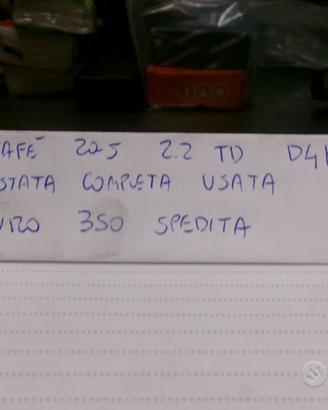 IAP
AFE 2005 2.2 TD D4
STATA COMPLETA USATA
URO 350 SPEDITA